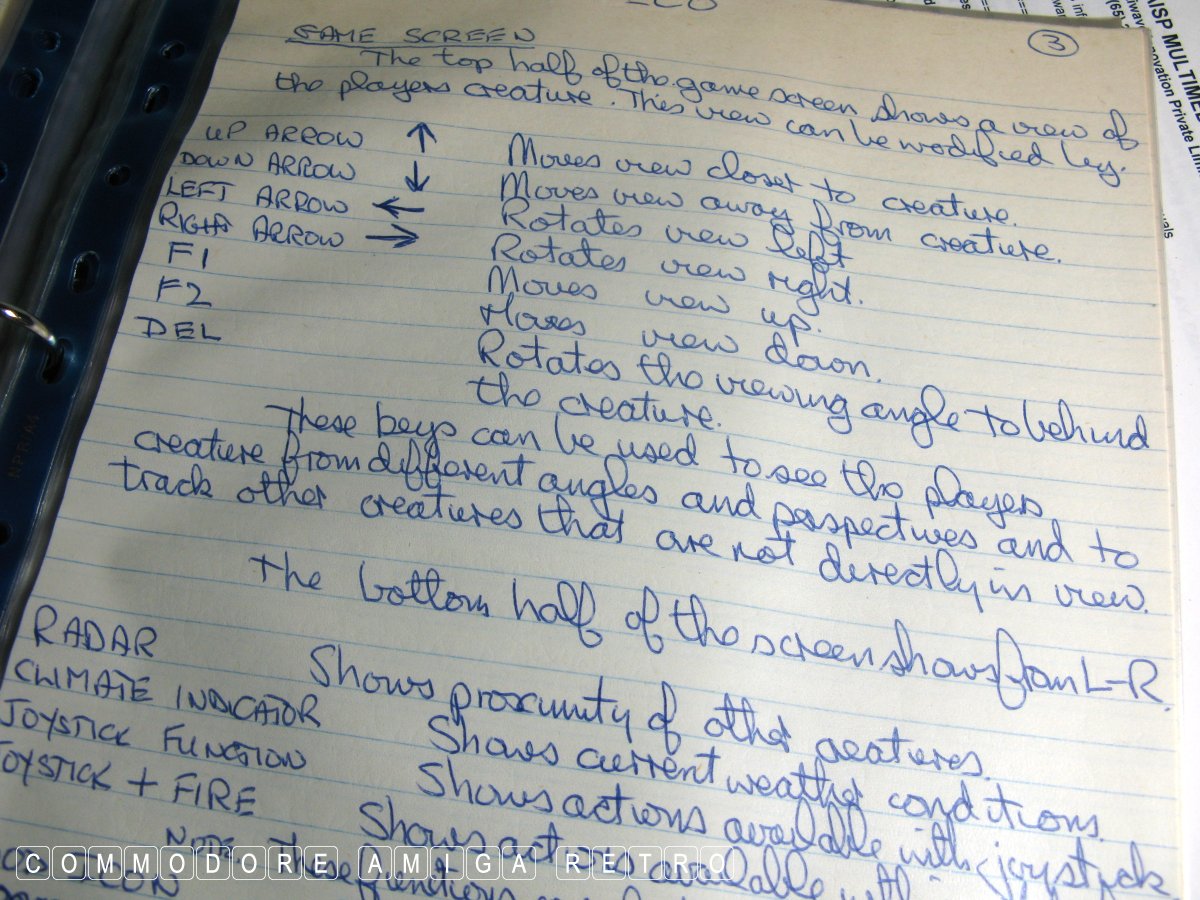 ECO
3
GAME SCREEN
The top half of the game screen shows a view of
the players creature. This view can be modified by:
UP ARROW ↑ Moves view closer to creature.
DOWN ARROW ↓ Moves view away from creature.
LEFT ARROW ← Rotates view left
RIGHT ARROW → Rotates view right.
F1 Moves view up.
F2 Moves view down.
DEL Rotates the viewing angle to behind
the creature.
These keys can be used to see the players
creature from different angles and perspectives and to
track other creatures that are not directly in view.
The bottom half of the screen shows from L-R.
RADAR Shows proximity of other creatures.
CLIMATE INDICATOR Shows current weather conditions.
JOYSTICK FUNCTION Shows actions available with joystick
JOYSTICK + FIRE Shows actions available with
NOTE These functions
ICON
COMMODORE AMIGA RETRO
AISP MULTIMED
ovation Private Limi